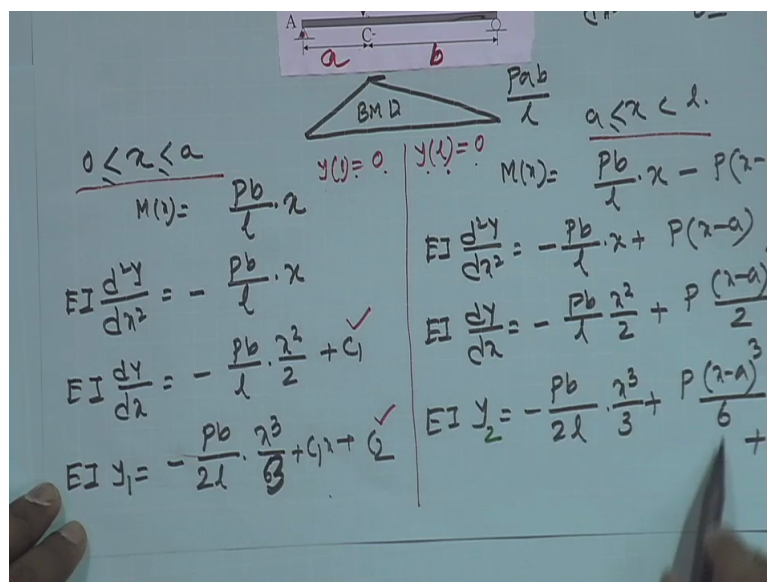 A
C
a b
BMD
Pab/l
0 ≤ x ≤ a
y() = 0
y(l) = 0
a ≤ x < l.
M(x) = Pb/l · x
EI d²y/dx² = - Pb/l · x
EI dy/dx = - Pb/l · x²/2 + C₁
EI y₁ = - Pb/2l · x³/6 + C₁x + C₂
M(x) = Pb/l · x - P(x-
EI d²y/dx² = - Pb/l · x + P(x-a)
EI dy/dx = - Pb/l x²/2 + P (x-a)/2
EI y₂ = - Pb/2l · x³/3 + P(x-a)³/6
+